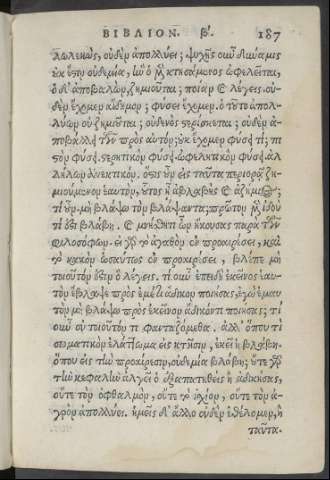 ΒΙΒΛΙΟΝ. β'. 187
λωλεκὼς, οὐδὲν ἀπολλύει; ψυχῆς οὖν δύναμις
οὐκ ἔστιν οὐδεμία, ἣν ὁ μὲν κτησάμενος ὠφελεῖται,
ὁ δ' ἀποβαλὼν, ζημιοῦται; ποίαν καὶ λέγεις, οὐ-
δὲν ἔχομεν αἰδῆμον; φύσει ἔχομεν. ὁ τοῦτο ἀπολ-
λύων οὐ ζημιοῦται; οὐδενὸς στερίσκεται; οὐδὲν ἀ-
ποβάλλει τῶν πρὸς αὐτόν; οὐκ ἔχομεν φύσει τί; πι-
στὸν φύσει, στερκτικὸν φύσει, ὠφελητικὸν φύσει, ἀλ-
λήλων ἀνεκτικόν. ὅστις οὖν εἰς ταῦτα περιορᾷ ζη-
μιούμενον ἑαυτὸν, οὗτος ᾖ ἀβλαβὴς καὶ ἀζήμιος;
τί οὖν. μὴ βλάψω τὸν βλάψαντα; πρῶτον μὲν ἰδοῦ
τί ἐστι βλάβη. καὶ μνήσθητι ὧν ἤκουσας παρὰ τῶν
φιλοσόφων. εἰ γὰρ τὸ ἀγαθὸν ἐν προαιρέσει, καὶ
τὸ κακὸν ὡσαύτως ἐν προαιρέσει, βλέπε μὴ
τοιοῦτόν ἐστιν ὃ λέγεις. τί οὖν ἐπειδὴ ἐκεῖνος ἑαυ-
τὸν ἔβλαψε πρὸς ἐμέ τι ἄδικον ποιήσας, ἐγὼ ἐμαυ
τὸν μὴ βλάψω πρὸς ἐκεῖνον ἄδικόν τι ποιήσας; τί
οὖν οὐ τοιοῦτόν τι φανταζόμεθα. ἀλλ' ὅπου τὶ
σωματικὸν ἐλάττωμα εἰς κτῆσιν, ἐκεῖ ἡ βλάβη.
ὅπου εἰς τὴν προαίρεσιν, οὐδεμία βλάβη; οὔτε γὰρ
τὴν κεφαλὴν ἀλγεῖ ὁ ἐξαπατηθεὶς ἢ ἀδικήσας,
οὔτε τὸν ὀφθαλμὸν, οὔτε τὸ ἰσχίον, οὔτε τὸν ἀ-
γρὸν ἀπολλύει. ἡμεῖς δ' ἄλλο οὐδὲν ἐθέλομεν, ἢ
ταῦτα.